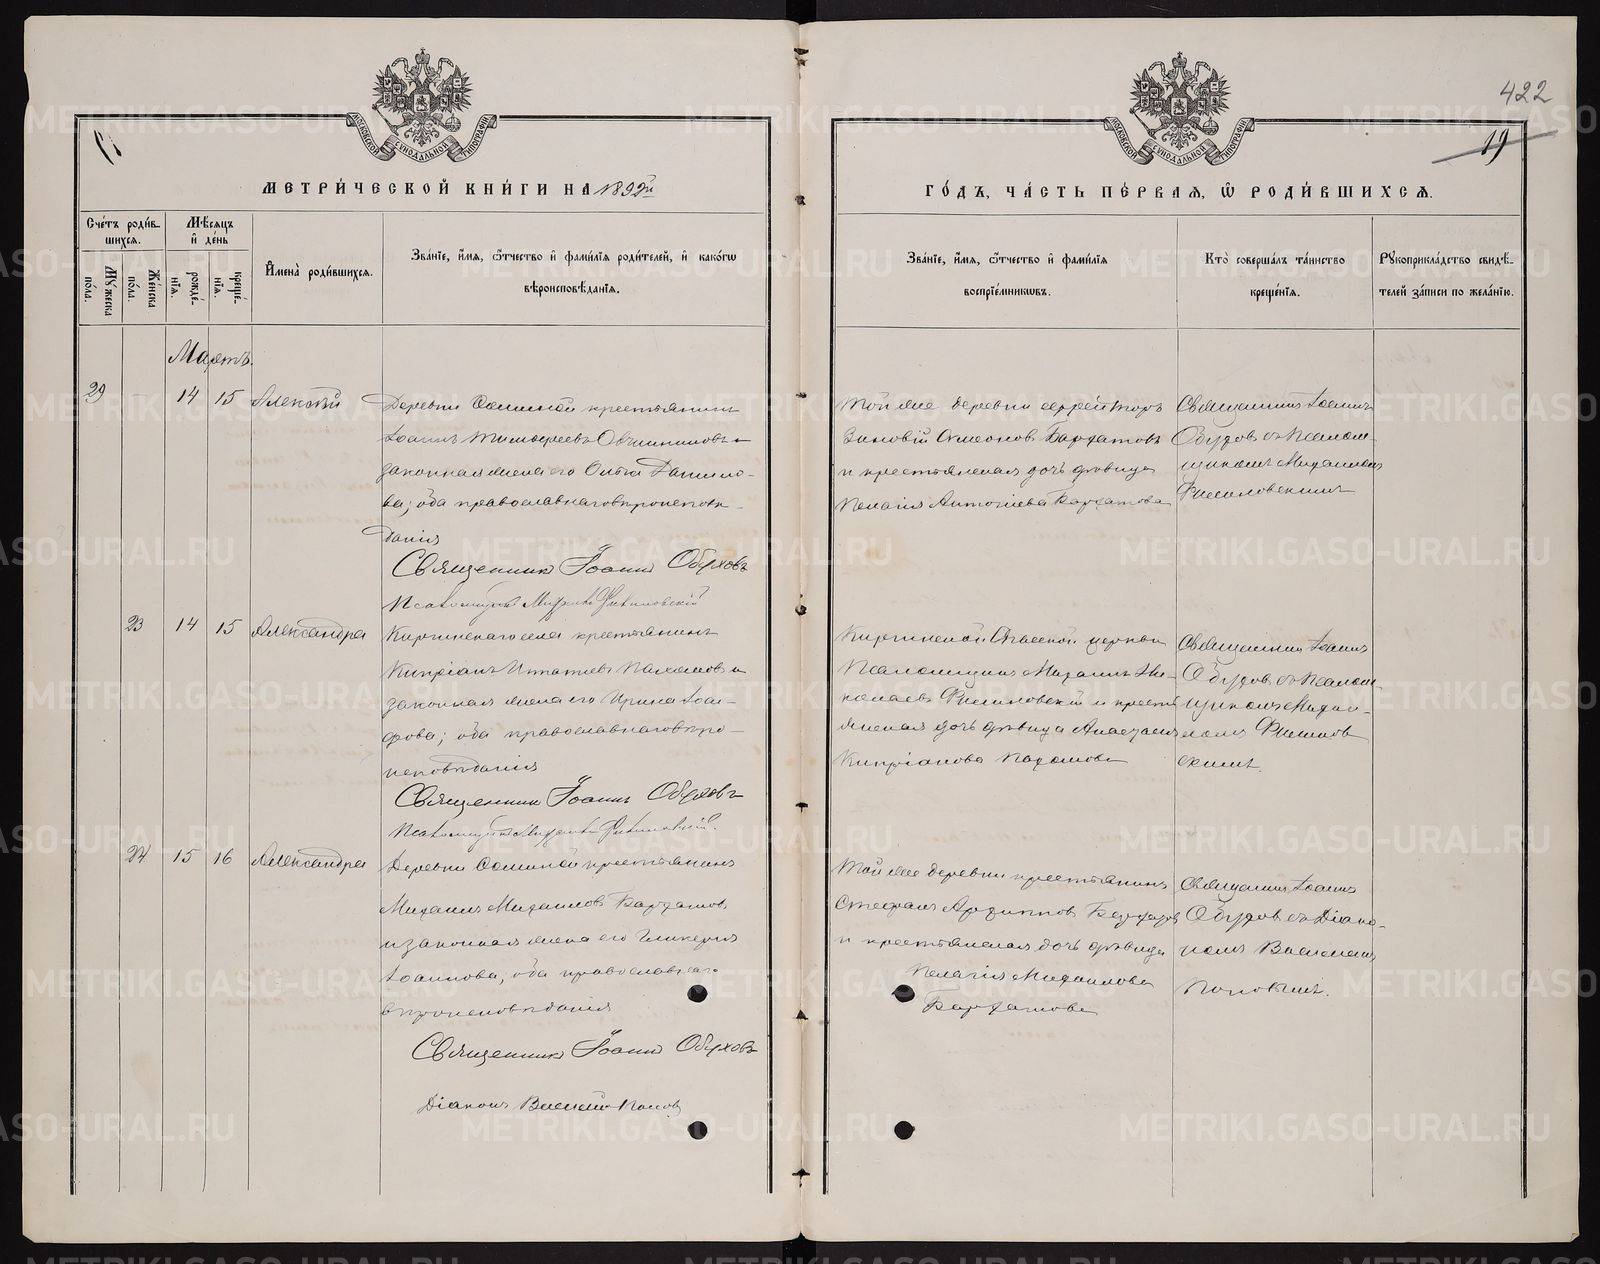 422
19
МОСКОВСКОЙ СѴНОДАЛЬНОЙ ТИПОГРАФІИ
МОСКОВСКОЙ СѴНОДАЛЬНОЙ ТИПОГРАФІИ
МЕТРИ́ЧЕСКОЙ КНИ́ГИ НА 1892й
ГО́ДЪ, ЧА́СТЬ ПЕ́РВАЯ, Ѡ РОДИ́ВШИХСЯ.
Сче́тъ роди́вшихся.
Му́жеска по́ла.
Же́нска по́ла.
Мѣ́сяцъ и́ де́нь
рожде́нія.
креще́нія.
И҆мена̀ роди́вшихся.
Зва́ніе, и҆́мя, ѻ҆́тчество и҆ фами́лія роди́телей, и҆ како́гѡ
вѣроисповѣ́данія.
Зва́ніе, и҆́мя, ѻ҆́тчество и҆ фами́лія
воспріе́мникѡвъ.
Кто̀ соверша́лъ та́инство
креще́нія.
Рꙋкоприкла́дство свидѣ́-
телей за́писи по жела́нію.
Мартъ.
29 – 14 15 Алексѣй
Деревни Соминой крестьянинъ
Іоаннъ Тимофеевъ Овчинниковъ и
законная жена его Ольга Данило-
ва; оба православнаго вѣроисповѣ-
данія
Священникъ Іоаннъ Обуховъ
Псаломщикъ Михаилъ
Той же деревни ефрейторъ
Зиновій Симеоновъ Бархатовъ
и крестьянская дочь дѣвица
Пелагія Бархатова
Священникъ Іоаннъ
Обуховъ съ Псалом-
щикомъ Михаиломъ
23 14 15 Александра
Киргинскаго села крестьянинъ
Кипріанъ Игнатіевъ Пахомовъ и
законная жена его Ирина Іоси-
фова; оба православнаго вѣро-
исповѣданія
Священникъ Іоаннъ Обуховъ
Псаломщикъ Михаилъ
Киргинской Спасской церкви
Псаломщикъ Михаилъ Ни-
колаевъ и кресть
янская дочь дѣвица Анастасія
Кипріанова Пахомова
Священникъ Іоаннъ
Обуховъ съ Псалом-
щикомъ Михаи-
ломъ
скимъ.
24 15 16 Александра
Деревни Соминой крестьянинъ
Михаилъ Михаиловъ Бархатовъ
и законная жена его Гликерія
Іоаннова; оба православнаго
вѣроисповѣданія
Священникъ Іоаннъ Обуховъ
Діаконъ Василій Поповъ
Той же деревни крестьянинъ
Стефанъ Архиповъ Бархатовъ
и крестьянская дочь дѣвица
Пелагія Михаилова
Бархатова
Священникъ Іоаннъ
Обуховъ съ Діако-
номъ Василіемъ
Поповымъ.